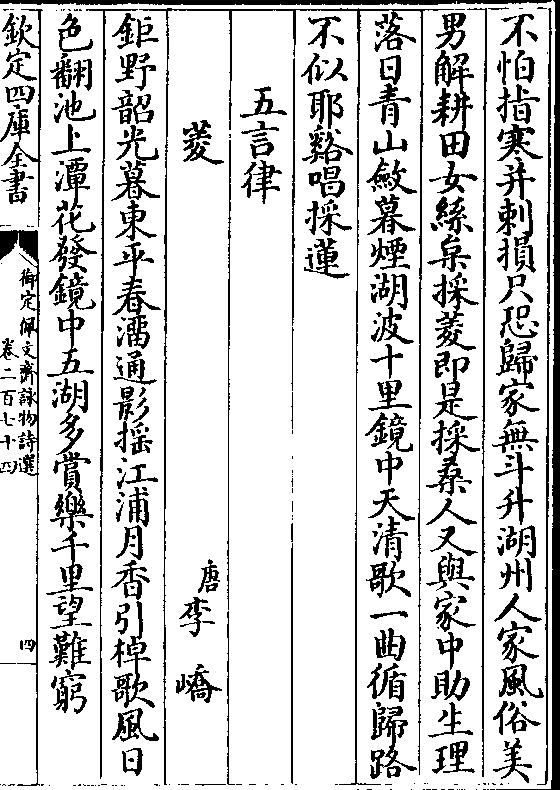 不怕指寒并刺損只恐歸家無斗升湖州人家風俗美
男解耕田女絲枲採菱即是採桑人又與家中助生理
落日青山斂暮煙湖波十里鏡中天清歌一曲循歸路
不似耶谿唱採蓮
五言律
菱
唐李嶠
鉅野韶光暮東平春溜通影搖江浦月香引棹歌風日
色翻池上潭花發鏡中五湖多賞樂千里望難窮
欽定四庫全書
御定佩文齋詠物詩選
卷二百七十四
四